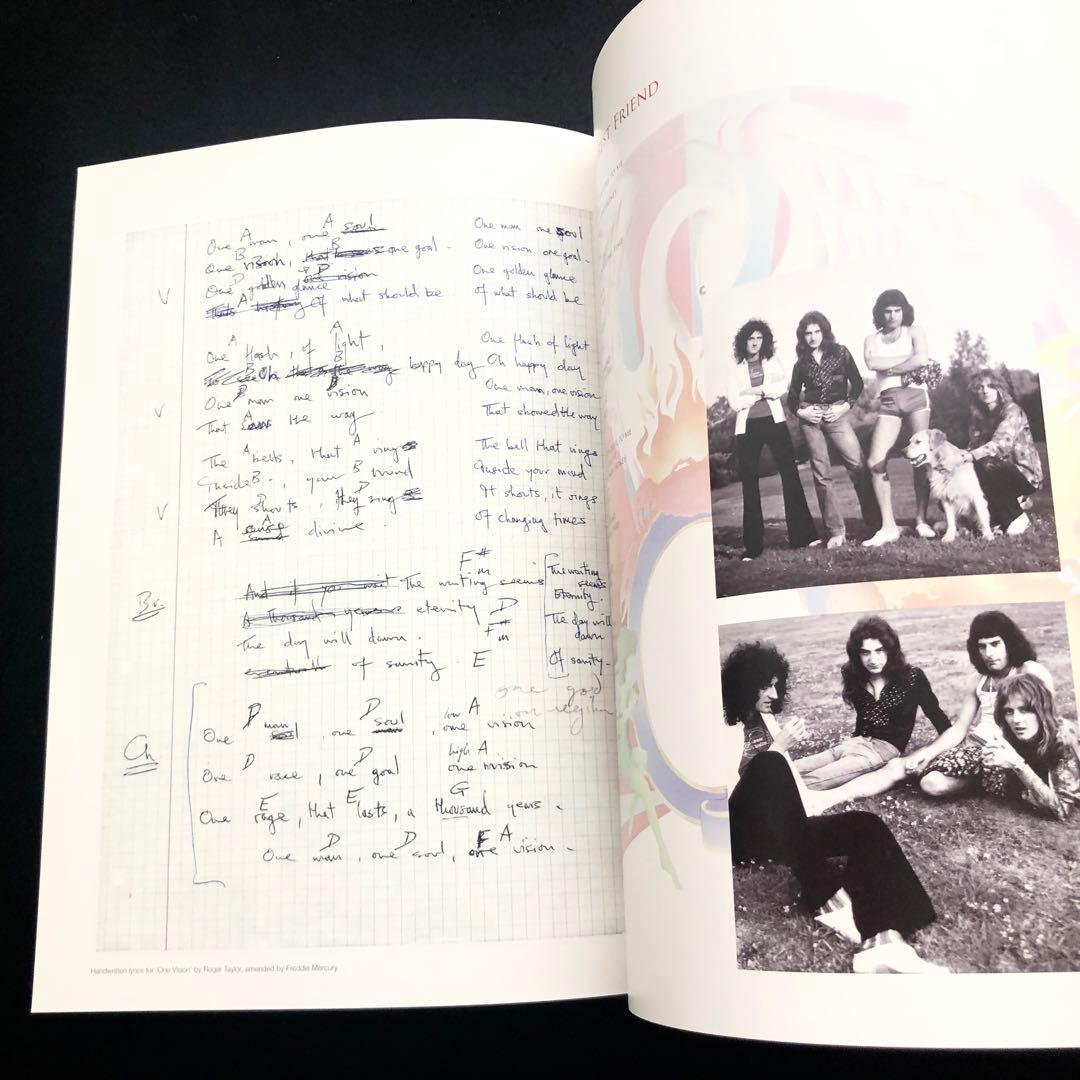 One A man, one A soul
One B vision, B one goal -
One D golden glance D one vision
A Of what should be
V
One man one soul
One vision one goal -
One golden glance
of what should be
One A flash, of A light,
B Oh B happy day
One D man one D vision
That A the way
V
One flash of light
Oh happy day
One man, one vision
That showed the way
The A bells, that A ring
Inside B -, your B mind
They shouts, D they ring
A A divine .
V
The bell that rings
Inside your mind
It shouts, it rings
Of changing times
Br.
And if you wait The waiting seems F#m
A thousand years eternity D
The day will dawn . F#m
of sanity . E
The waiting
seems
Eternity.
The day will
dawn
Of sanity -
one god
Ch
One D man, one D soul, low A one vision
One D race, one D goal high A one vision
One E rage, that E lasts, a G thousand years -
One D man, one D soul, one A vision -
Handwritten lyrics for 'One Vision' by Roger Taylor, amended by Freddie Mercury.
FRIEND
TO ME